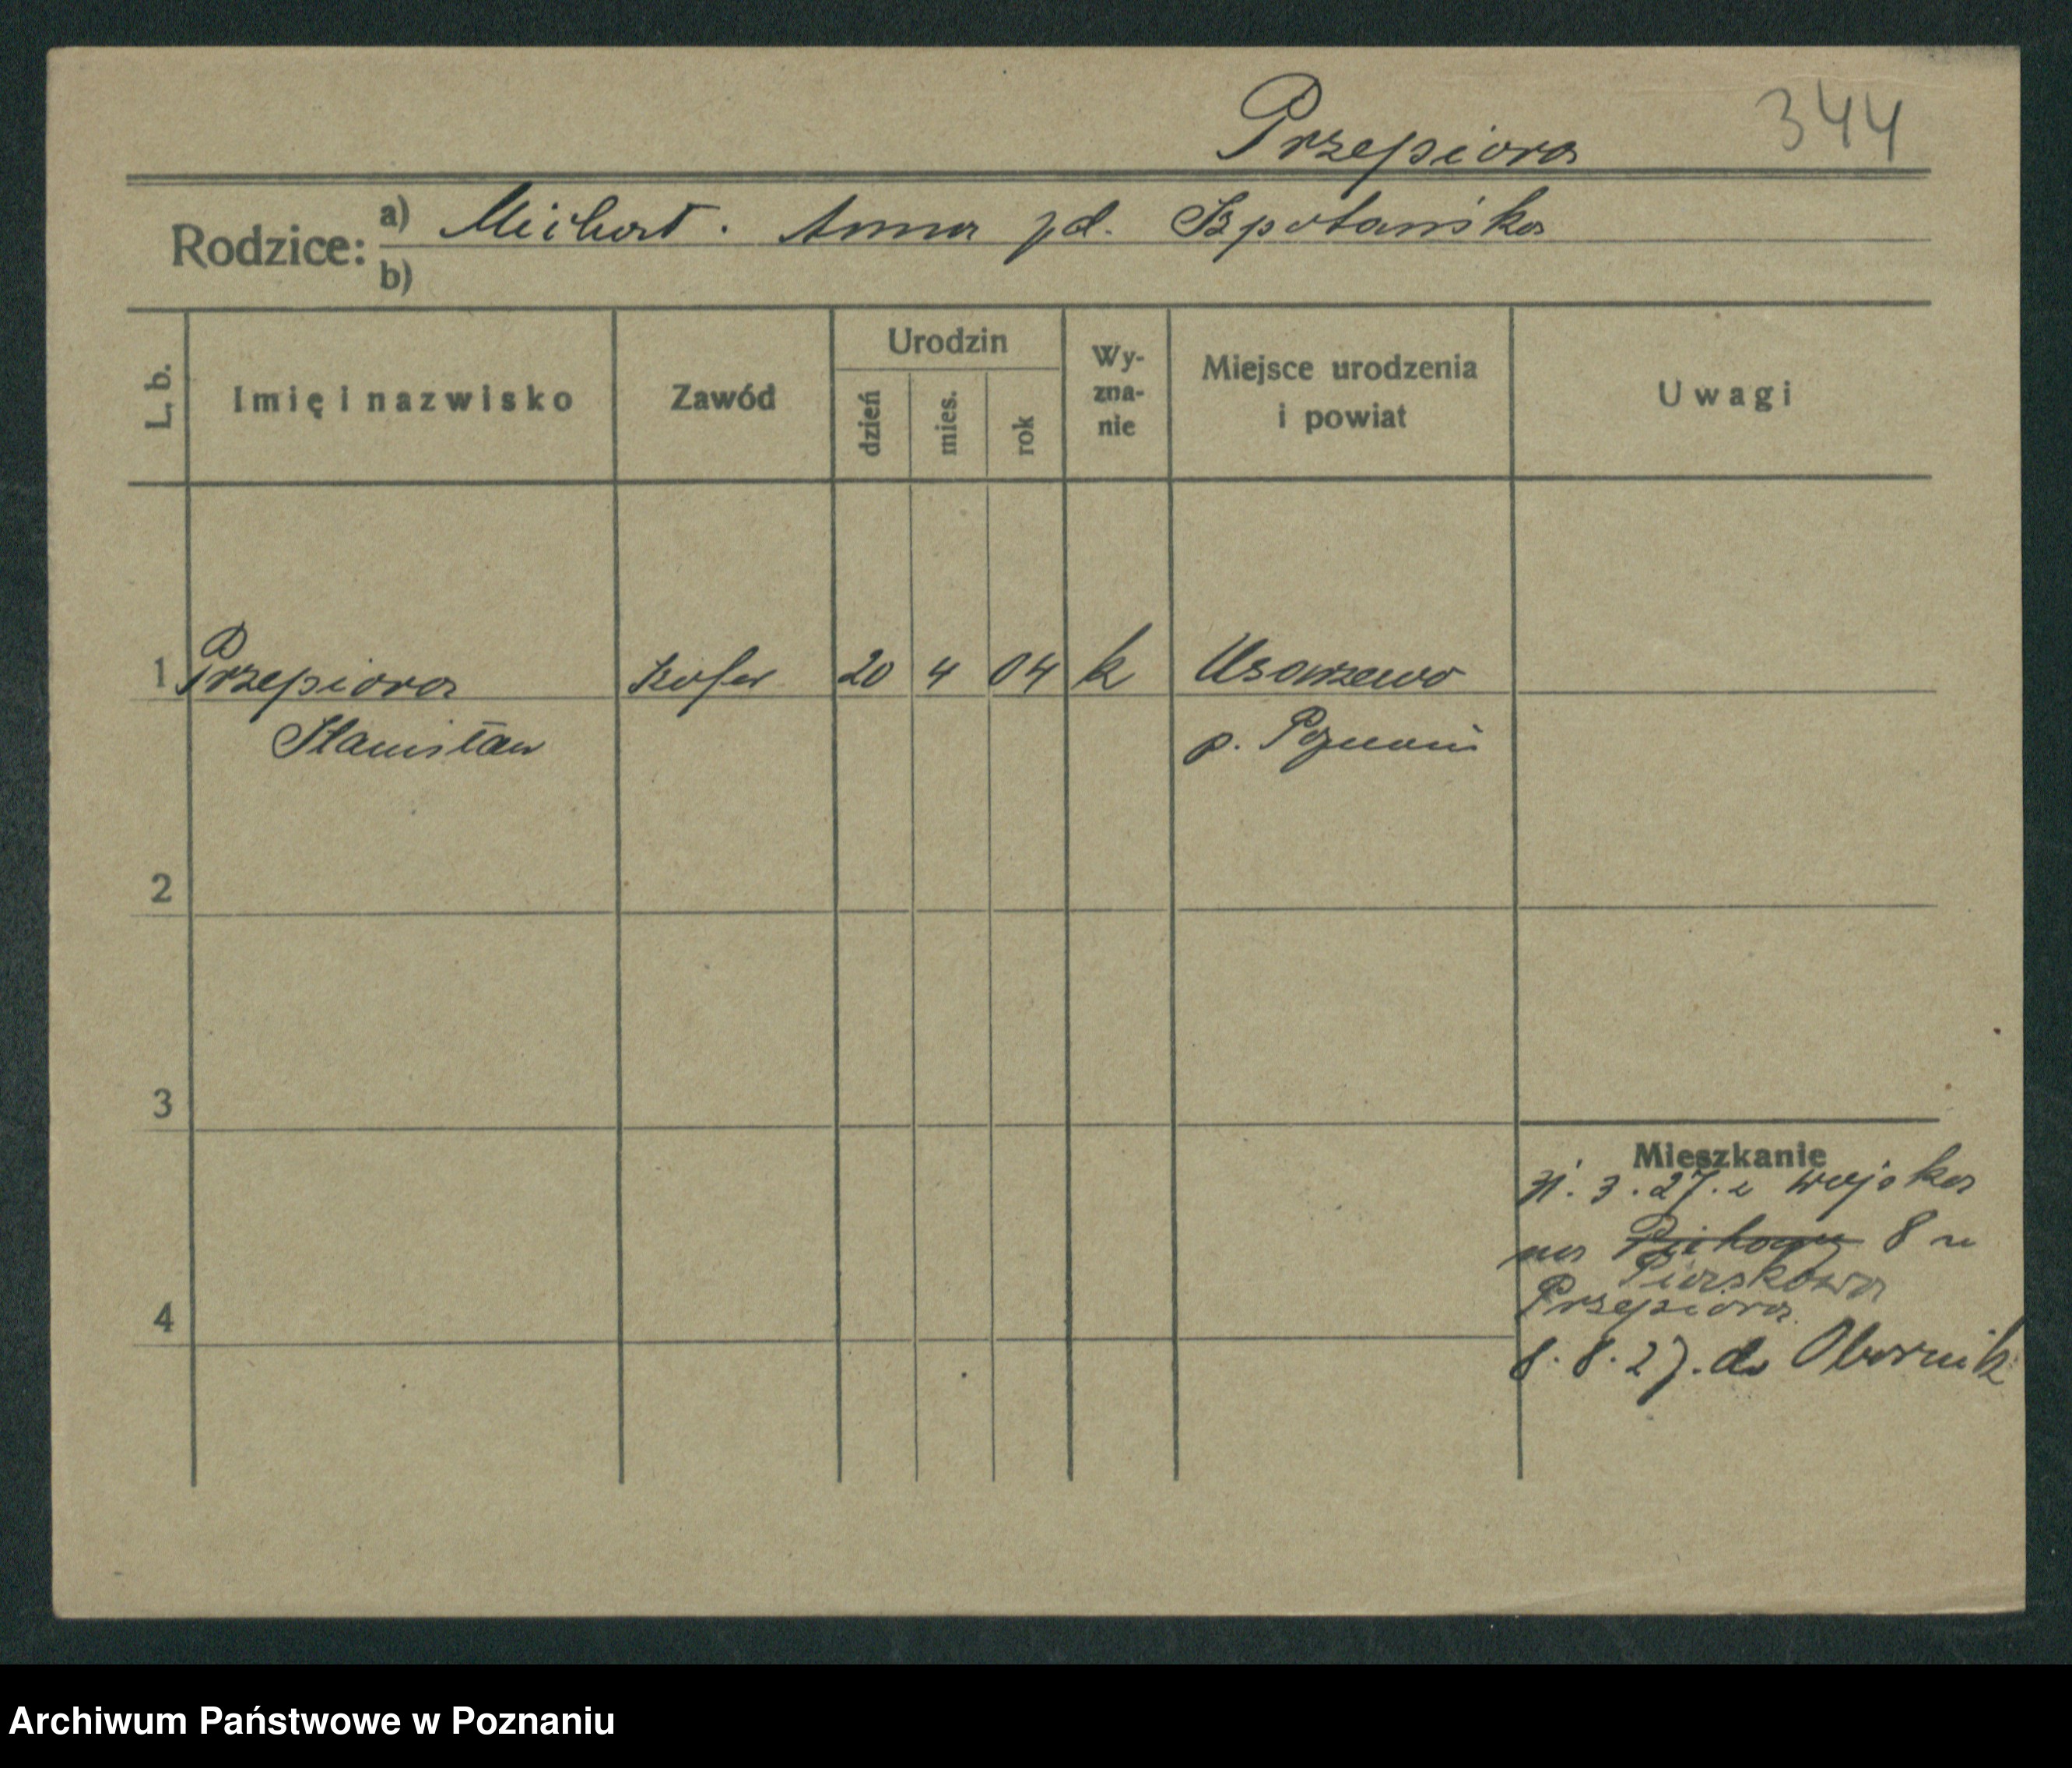 344
Przepiora
Rodzice:
a) Michał. Anna zd. Szpotańska
b)
L. b.
Imię i nazwisko
Zawód
Urodzin
dzień
mies.
rok
Wy-
zna-
nie
Miejsce urodzenia
i powiat
Uwagi
1 Przepiora szofer 20 4 04 k Usarzewo
Stanisław p. Poznań
2
3
Mieszkanie
31. 3. 27. z wojska
na 8 u
Piaskowa
Przepiora.
4
8. 8. 27. do Obornik
Archiwum Państwowe w Poznaniu